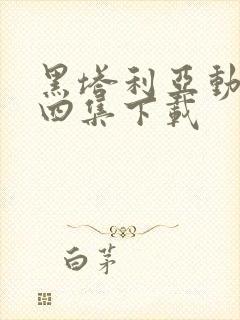 黑塔利亞動
四集下載
白茅